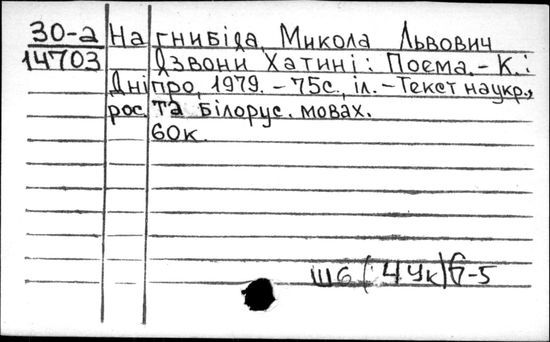 30-а Нагнибіда, Микола Львович
14703 Дзвони Хатині: Поема. - К.:
Дніпро, 1979. - 75с., іл. - Текст на укр.,
рос. та білорус. мовах.
60к.
Ш6(4Ук)6-5